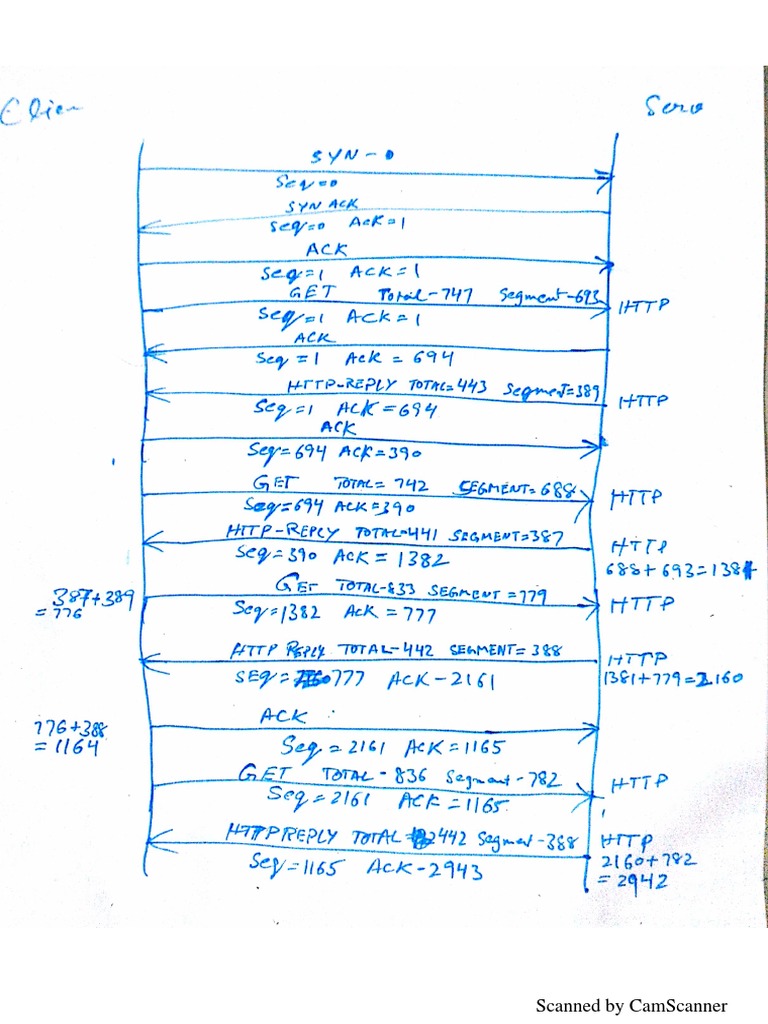 Clien
Serv
SYN - 0
Seq=0
SYN ACK
Seq=0 Ack=1
ACK
Seq=1 ACK=1
GET Total-747 Segment-693
HTTP
Seq=1 ACK=1
ACK
Seq=1 Ack = 694
HTTP-REPLY TOTAL=443 Segment=389
HTTP
Seq=1 ACK=694
ACK
Seq=694 ACK=390
GET TOTAL= 742 SEGMENT=688
HTTP
Seq=694 ACK=390
HTTP-REPLY TOTAL=441 SEGMENT=387
HTTP
Seq=390 ACK = 1382
688+693=1381
GET TOTAL-833 SEGMENT=779
HTTP
387+389
=776
Seq=1382 ACK=777
HTTP REPLY TOTAL-442 SEGMENT=388
HTTP
SEQ=777 ACK-2161
1381+779=2160
776+388
=1164
ACK
Seq=2161 ACK=1165
GET TOTAL-836 Segment-782
HTTP
Seq=2161 ACK=1165
HTTP REPLY TOTAL=442 Segment-388
HTTP
Seq=1165 ACK-2943
2160+782
=2942
Scanned by CamScanner